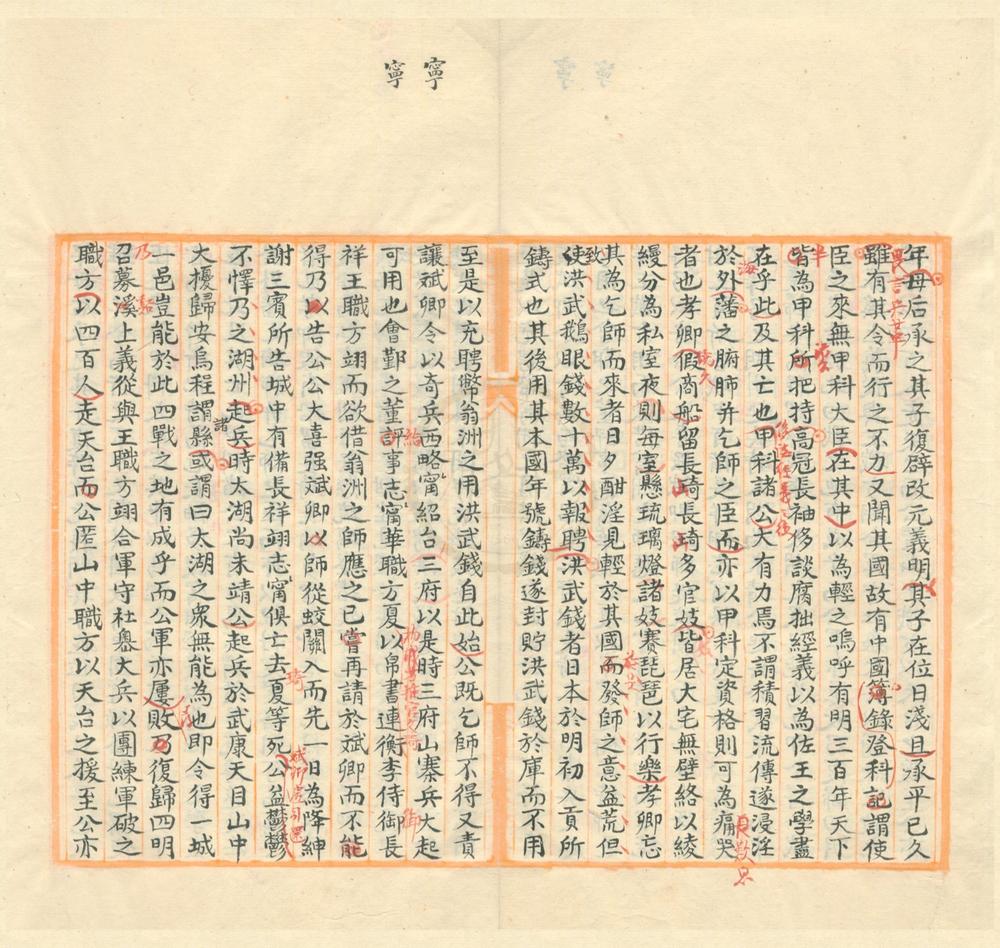 寧
寧
年母后承之其子復辟改元義明其子在位日淺且承平已久
雖有其令而行之不力又聞其國故有中國簿錄登科記謂使
臣之來無甲科大臣在其中以為輕之嗚呼有明三百年天下
皆為甲科所把持高冠長袖侈談腐拙經義以為佐王之學盡
在乎此及其亡也甲科諸公大有力焉不謂積習流傳遂浸淫
於外藩之腑肺并乞師之臣而亦以甲科定資格則可為痛哭
者也孝卿假商船留長琦長琦多官妓皆居大宅無壁絡以綾
縵分為私室夜則每室懸琉璃燈諸妓賽琵琶以行樂孝卿忘
其為乞師而來者日夕酣淫見輕於其國而發師之意益荒但
致使洪武鵝眼錢數十萬以報聘洪武錢者日本於明初入貢所
鑄式也其後用其本國年號鑄錢遂封貯洪武錢於庫而不用
至是以充聘幣翁洲之用洪武錢自此始公既乞師不得又責
讓斌卿令以奇兵西略甯紹台三府以是時三府山寨兵大起
可用也會鄞之董評事志甯華職方夏以帛書連衡李侍御長
祥王職方翊而欲借翁洲之師應之已嘗再請於斌卿而不能
得乃以告公公大喜强斌卿以師從蛟關入而先一日為降紳
謝三賓所告城中有備長祥翊志甯俱亡去夏等死公益鬱鬱
不懌乃之湖州起兵時太湖尚未靖公起兵於武康天目山中
大擾歸安烏程諸縣或謂曰太湖之衆無能為也即令得一城
一邑豈能於此四戰之地有成乎而公軍亦屢敗乃復歸四明
召募溪上義從與王職方翊合軍守杜嶴大兵以團練軍破之
職方以四百人走天台而公匿山中職方以天台之援至公亦